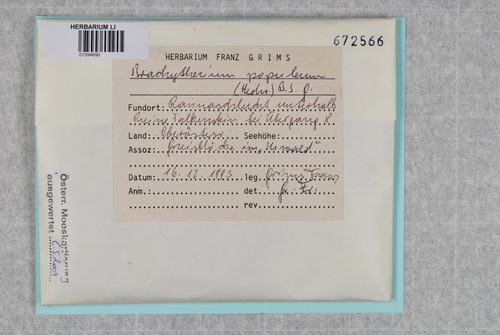 HERBARIUM LI
01594690
672566
HERBARIUM FRANZ GRIMS
Brachythecium populeum
(Hedw.) B.S.G.
Fundort: Rannaschlucht unterhalb
Ruine Falkenstein bei
Land: Oberösterr. Seehöhe:
Assoz: im "Urwald"
Datum: 16.12.1983 leg. Grims Franz
Anm.: det. Gr. Fr.
rev.
Österr. Mooskartierung
ausgewertet